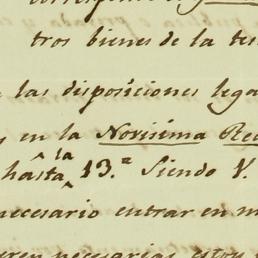 tros bienes de la tes
las disposiciones lega
en la Novisima Rec
hasta la 13.ª Siendo V.
necesario entrar en m